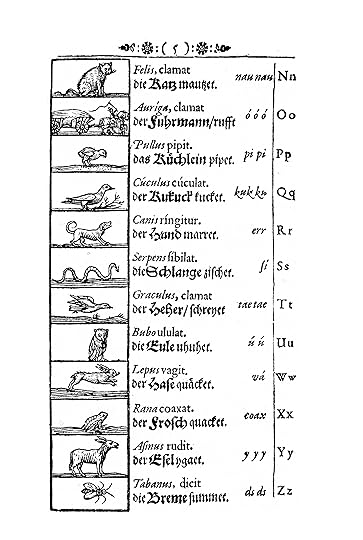 ( 5 )
Felis, clamat nau nau Nn
die Katz mautzet.
Auriga, clamat ó ó ó Oo
der Fuhrmann/rufft
Pullus pipit. pi pi Pp
das Küchlein pipet.
Cúculus cúculat. kuk ku Qq
der Kukuck kucket.
Canis ringitur. err Rr
der Hund marret.
Serpens sibilat. si Ss
die Schlange zischet.
Graculus, clamat tae tae Tt
der Heher/schreyet
Bubo ululat. ú ú Uu
die Eule uhuhet.
Lepus vagit. vá Ww
der Hase quäcket.
Rana coaxat. coax Xx
der Frosch quacket.
Asinus rudit. y y y Yy
der Esel ygaet.
Tabanus, dicit ds ds Zz
die Breme summet.